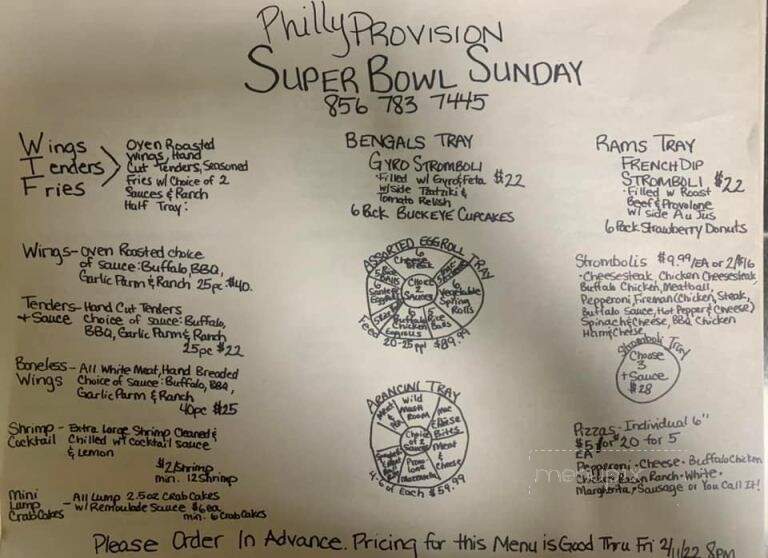 Philly PROVISION
SUPER BOWL SUNDAY
856 783 7445
Wings
Tenders
Fries
Oven Roasted
Wings, Hand
Cut Tenders, Seasoned
Fries w/ Choice of 2
Sauces & Ranch
Half Tray:
BENGALS TRAY
GYRO STROMBOLI
Filled w/ Gyro, Feta $22
w/side Tzatziki &
Tomato Relish
6 Pack BUCKEYE CUPCAKES
RAMS TRAY
FRENCH DIP
STROMBOLI $22
Filled w/ Roast
Beef & Provolone
w/ side Au Jus
6 Pack Strawberry Donuts
Wings - Oven Roasted choice
of sauce: Buffalo, BBQ,
Garlic Parm & Ranch 25pc $40.
Tenders - Hand Cut Tenders
+ Sauce choice of sauce: Buffalo,
BBQ, Garlic Parm & Ranch
25pc $22
Boneless - All White Meat, Hand Breaded
Wings Choice of Sauce: Buffalo, BBQ,
Garlic Parm & Ranch
40pc $25
Shrimp - Extra Large Shrimp Cleaned &
Cocktail Chilled w/ Cocktail Sauce
& Lemon
$2/Shrimp
min. 12 Shrimp
Mini
Lump
Crab Cakes - All Lump 2.5oz Crab Cakes
w/ Remoulade Sauce $6ea
min. 6 Crab Cakes
ASSORTED EGGROLL TRAY
6
Cheese
Steak
Choice
2
Sauces
6
Vegetable
Spring
Rolls
6
Buffalo
Chicken
6
Rice
Balls
Feed 20-25 ppl $89.99
ARANCINI TRAY
Wild
Mush
Room
Mac
&
Cheese
Bites
Choice
of 2
Sauces
Meat
&
Cheese
4-6 of Each $59.99
Strombolis $9.99/EA or 2/$16
- Cheesesteak, Chicken Cheesesteak,
Buffalo Chicken, Meatball,
Pepperoni, Fireman (Chicken, Steak,
Buffalo Sauce, Hot Pepper & Cheese)
Spinach & Cheese, BBQ Chicken
Ham & Cheese
Stromboli Tray
Choose
3
+ Sauce
$28
Pizzas - Individual 6"
$5 EA for $20 for 5
Pepperoni • Cheese • Buffalo Chicken
Chicken Bacon Ranch • White •
Margherita • Sausage or You Call It!
menupix
Please Order In Advance. Pricing for this Menu is Good Thru Fri 2/11/22 8pm